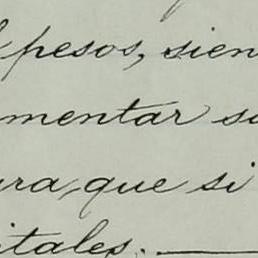 pesos, sien
mentar su
ura, que si
itales.